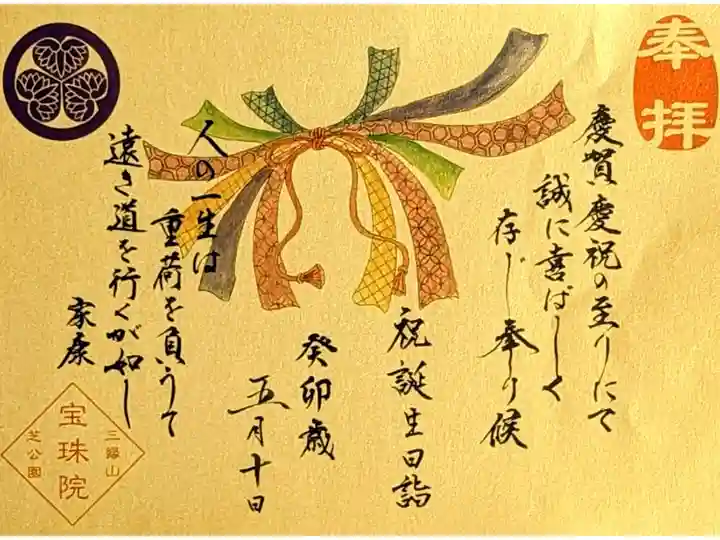 奉拝
慶賀慶祝の至りにて
誠に喜ばしく
存じ奉り候
祝誕生日詣
癸卯歳
五月十日
人の一生は
重荷を負うて
遠き道を行くが如し
家康
三縁山
宝珠院
芝公園